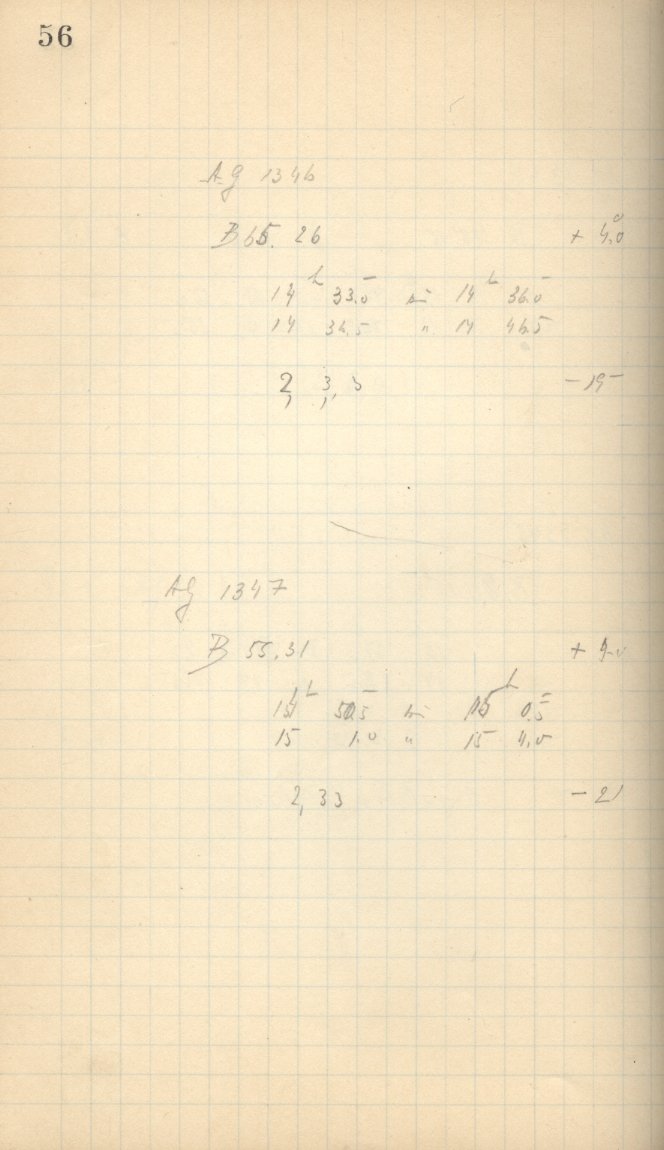 56
AG 1346
B 65.26 + 4.0°
14h 33.5 bis 14h 36.0
14 36.5 " 14 46.5
2, 3, 3 - 15
AG 1347
B 55.31 + 4.0
14h 50.5 bis 15h 0.5
15 1.0 " 15 4.0
2, 33 - 21